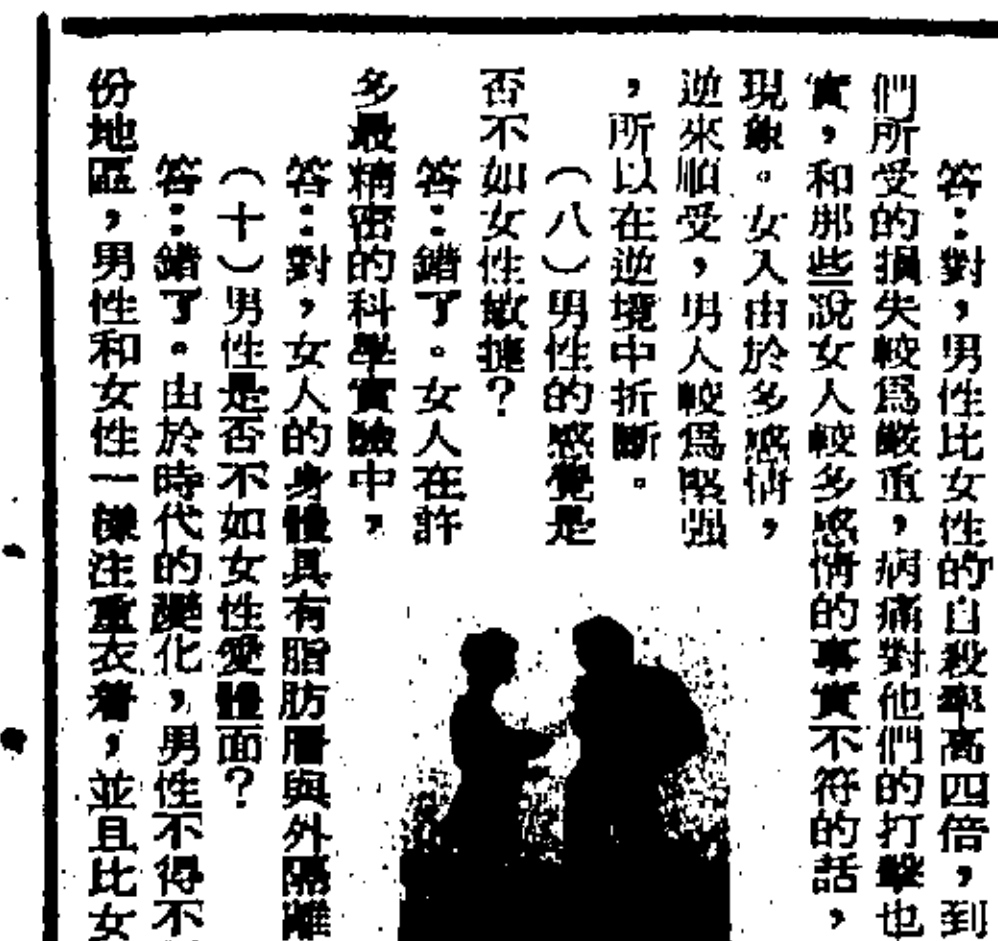 答：對，男性比女性的自殺率高四倍，到
們所受的損失較爲嚴重，病痛對他們的打擊也
實，和那些說女人較多感情的事實不符的話，
現象。女入由於多感情，
逆來順受，男人較爲堅强
，所以在逆境中折斷。
（八）男性的感覺是
否不如女性敏捷？
答：錯了。女人在許
多最精密的科學實驗中，
答：對，女人的身體具有脂肪層與外隔離
（十）男性是否不如女性愛體面？
答：錯了。由於時代的變化，男性不得不
份地區，男性和女性一樣注重衣着，並且比女